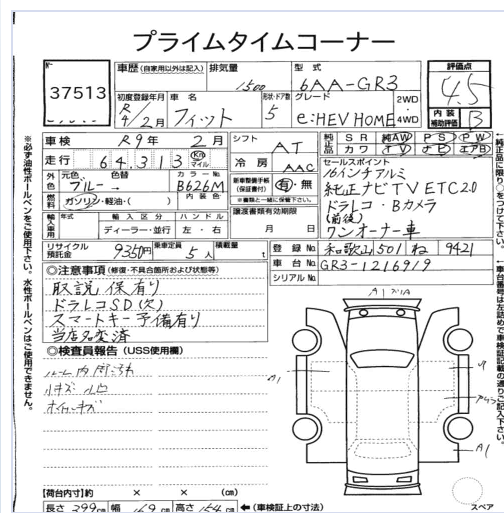 プライムタイムコーナー
37513
車歴(自家用以外は記入)
排気量 1500
型式 6AA-GR3
評価点 4.5
内装補助評価 B
初度登録年月 R4/2月
車名 フィット
形状・ドア数 5
グレード e:HEV HOME
2WD・4WD
車検 R9年 2月
シフト AT
純正品 SR 純AW PS PW
カワ TV ナビ エアB
走行 64,313 Km マイル
冷房 AAC
セールスポイント
16インチアルミ
純正ナビTV ETC2.0
ドラレコ・Bカメラ
(前後)
ワンオーナー車
外色 元色 ブルー 色替
カラーNo. B626M
内装色
燃料 ガソリン・軽油・( )
新車整備手帳(保証書付) 有・無
※書類と一緒に保管下さい。
譲渡書類有効期限
月 日
輸入車用 年式
輸入区分 ディーラー・並行
ハンドル 左・右
リサイクル預託金 9350円
乗車定員 5人
積載量 t
登録No. 和歌山501 ね 9421
車台No. GR3-1216919
シリアルNo.
◎注意事項(修復・不具合箇所および状態等)
取説 保有り
ドラレコSD(欠)
スマートキー予備有り
当店名変済
◎検査員報告(USS使用欄)
小キズ 凹
A1
A1
A1
【荷台内寸】約 × × (cm)
長さ 399cm 幅 169cm 高さ 154cm ←(車検証上の寸法)
スペア
※必ず油性ボールペンをご使用下さい。水性ボールペンはご使用できません。